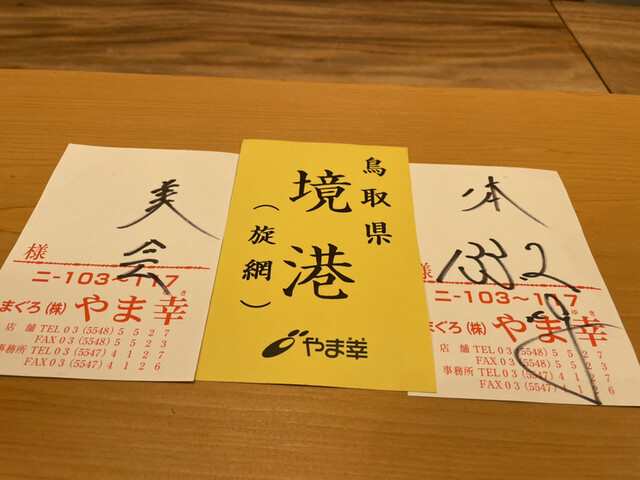 様
ニ-103～117
まぐろ(株)やま幸
き
店 舗 TEL 03 (5548) 5527
FAX 03 (5548) 5523
事務所 TEL 03 (5547) 4127
FAX 03 (5547) 4126
鳥取県
境港
(旋網)
やま幸
本
1332
様
ニ-103～117
まぐろ(株)やま幸
ゆき
店 舗 TEL 03 (5548) 5527
FAX 03 (5548) 5523
事務所 TEL 03 (5547) 4127
FAX 03 (5547) 4126